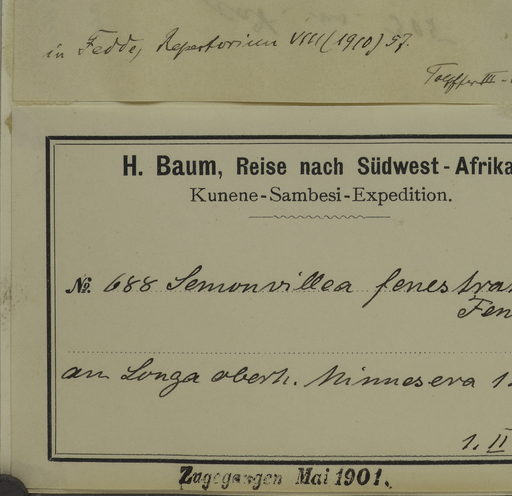 in Fedde, Repertorium VIII (1910) 57.
H. Baum, Reise nach Südwest-Afrika
Kunene-Sambesi-Expedition.
№. 688 Semonvillea fenestrat
Fen
am Longa oberh. Minnesera 1
1. II
Zugegangen Mai 1901.